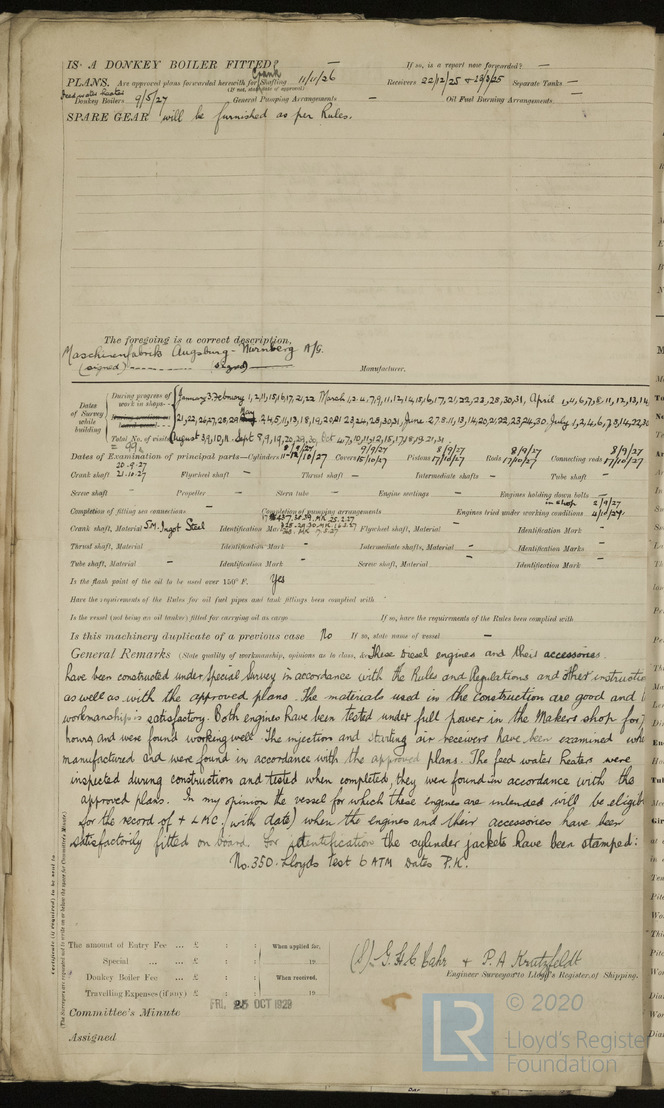 IS A DONKEY BOILER FITTED — If so, is a report now forwarded? —
PLANS. Are approved plans forwarded herewith for Crank Shafting 11/11/26 Receivers 22/12/25 & Separate Tanks —
(If not, state date of approval)
Feed water heater
Donkey Boilers 9/5/27 General Pumping Arrangements — Oil Fuel Burning Arrangements —
SPARE GEAR will be furnished as per Rules.
The foregoing is a correct description,
Maschinenfabrik Augsburg-Nürnberg A/G.
(signed) (signed) Manufacturer.
Dates of Survey while building
During progress of work in shops
January 3. February 1, 2, 11, 15, 16, 17, 21, 22 March 1. 2. 4, 7, 9, 11, 12, 14, 15, 16, 17, 21, 22, 28, 30, 31, April 1, 4, 6, 7, 8, 11, 12, 13, 14
21, 22, 26, 27, 28, 29 May 2.4,5,11,13,18,19,20,21 23,24,28,30,31, June 2.7.8.11,13,14,20,21,22,23,24,30. July 1,2,4,6,7,8,14,22,30
Total No. of visits August 8,9,10,11. Sept 8,9,19,20,29,30, Oct 4.7,10,11,12,15,17,18,19,21,31
= 99
Dates of Examination of principal parts—Cylinders Covers 9/9/27 15/10/27 Pistons 8/9/27 17/10/27 Rods 8/9/27 17/10/27 Connecting rods 8/9/27 17/10/27
Crank shaft 20.9.27 21.10.27 Flywheel shaft — Thrust shaft — Intermediate shafts — Tube shaft —
Screw shaft — Propeller — Stern tube — Engine seatings — Engines holding down bolts —
Completion of fitting sea connections — Completion of pumping arrangements Engines tried under working conditions in shop
Crank shaft, Material S.M. Ingot Steel Identification Mark Flywheel shaft, Material — Identification Mark —
Thrust shaft, Material — Identification Mark — Intermediate shafts, Material — Identification Marks —
Tube shaft, Material — Identification Mark — Screw shaft, Material — Identification Mark —
Is the flash point of the oil to be used over 150° F. Yes
Have the requirements of the Rules for oil fuel pipes and tank fittings been complied with
Is the vessel (not being an oil tanker) fitted for carrying oil as cargo If so, have the requirements of the Rules been complied with
Is this machinery duplicate of a previous case No If so, state name of vessel —
General Remarks (State quality of workmanship, opinions as to class, &c. These Diesel engines and their accessories
have been constructed under Special Survey in accordance with the Rules and Regulations and other
as well as with the approved plans. The materials used in the construction are good and
workmanship is satisfactory. Both engines have been tested under full power in the Makers shop for
hours and were found working well. The injection and starting air receivers have been examined
manufactured and were found in accordance with the approved plans. The feed water heaters were
inspected during construction and tested when completed, they were found in accordance with the
approved plans. In my opinion the vessel for which these engines are intended will be
for the record of + LMC (with date) when the engines and their accessories have been
satisfactorily fitted on board. For identification the cylinder jackets have been stamped:
No. 350. Lloyds Test 6 ATM Dates P.K.
Certificate (if required) to be sent to
(The Surveyors are requested not to write on or below the space for Committee's Minute.)
The amount of Entry Fee ... £ : : When applied for,
Special ... ... £ : : 19
Donkey Boiler Fee ... £ : : When received,
Travelling Expenses (if any) £ : : 19
(S) G. H. C. Jahr & P. A Krutzfeldt
Engineer Surveyor to Lloyd's Register of Shipping.
Committee's Minute FRI. 25 OCT 1929
Assigned
LR
© 2020
Lloyd's Registe
Foundation